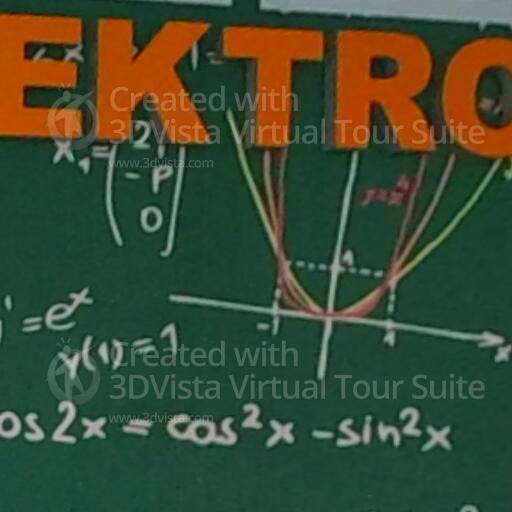 EKTRO
Created with
3DVista Virtual Tour Suite
www.3dvista.com
x₁=
2
-P
0
1
-1
1
x
=eˣ
y(1)=1
Created with
3DVista Virtual Tour Suite
www.3dvista.com
os2x = cos²x -sin²x